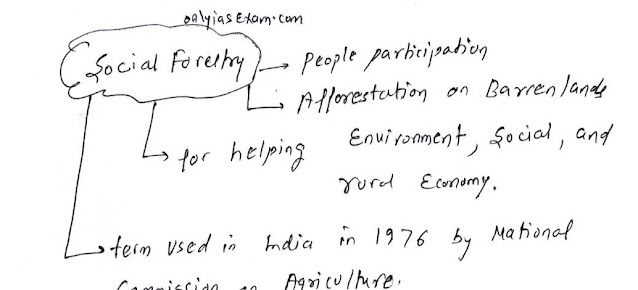 onlyiasExam.com
Social Forestry → People participation
Afforestation on Barren lands
for helping Environment, Social, and
rural Economy.
term used in India in 1976 by National
Commission on Agriculture.